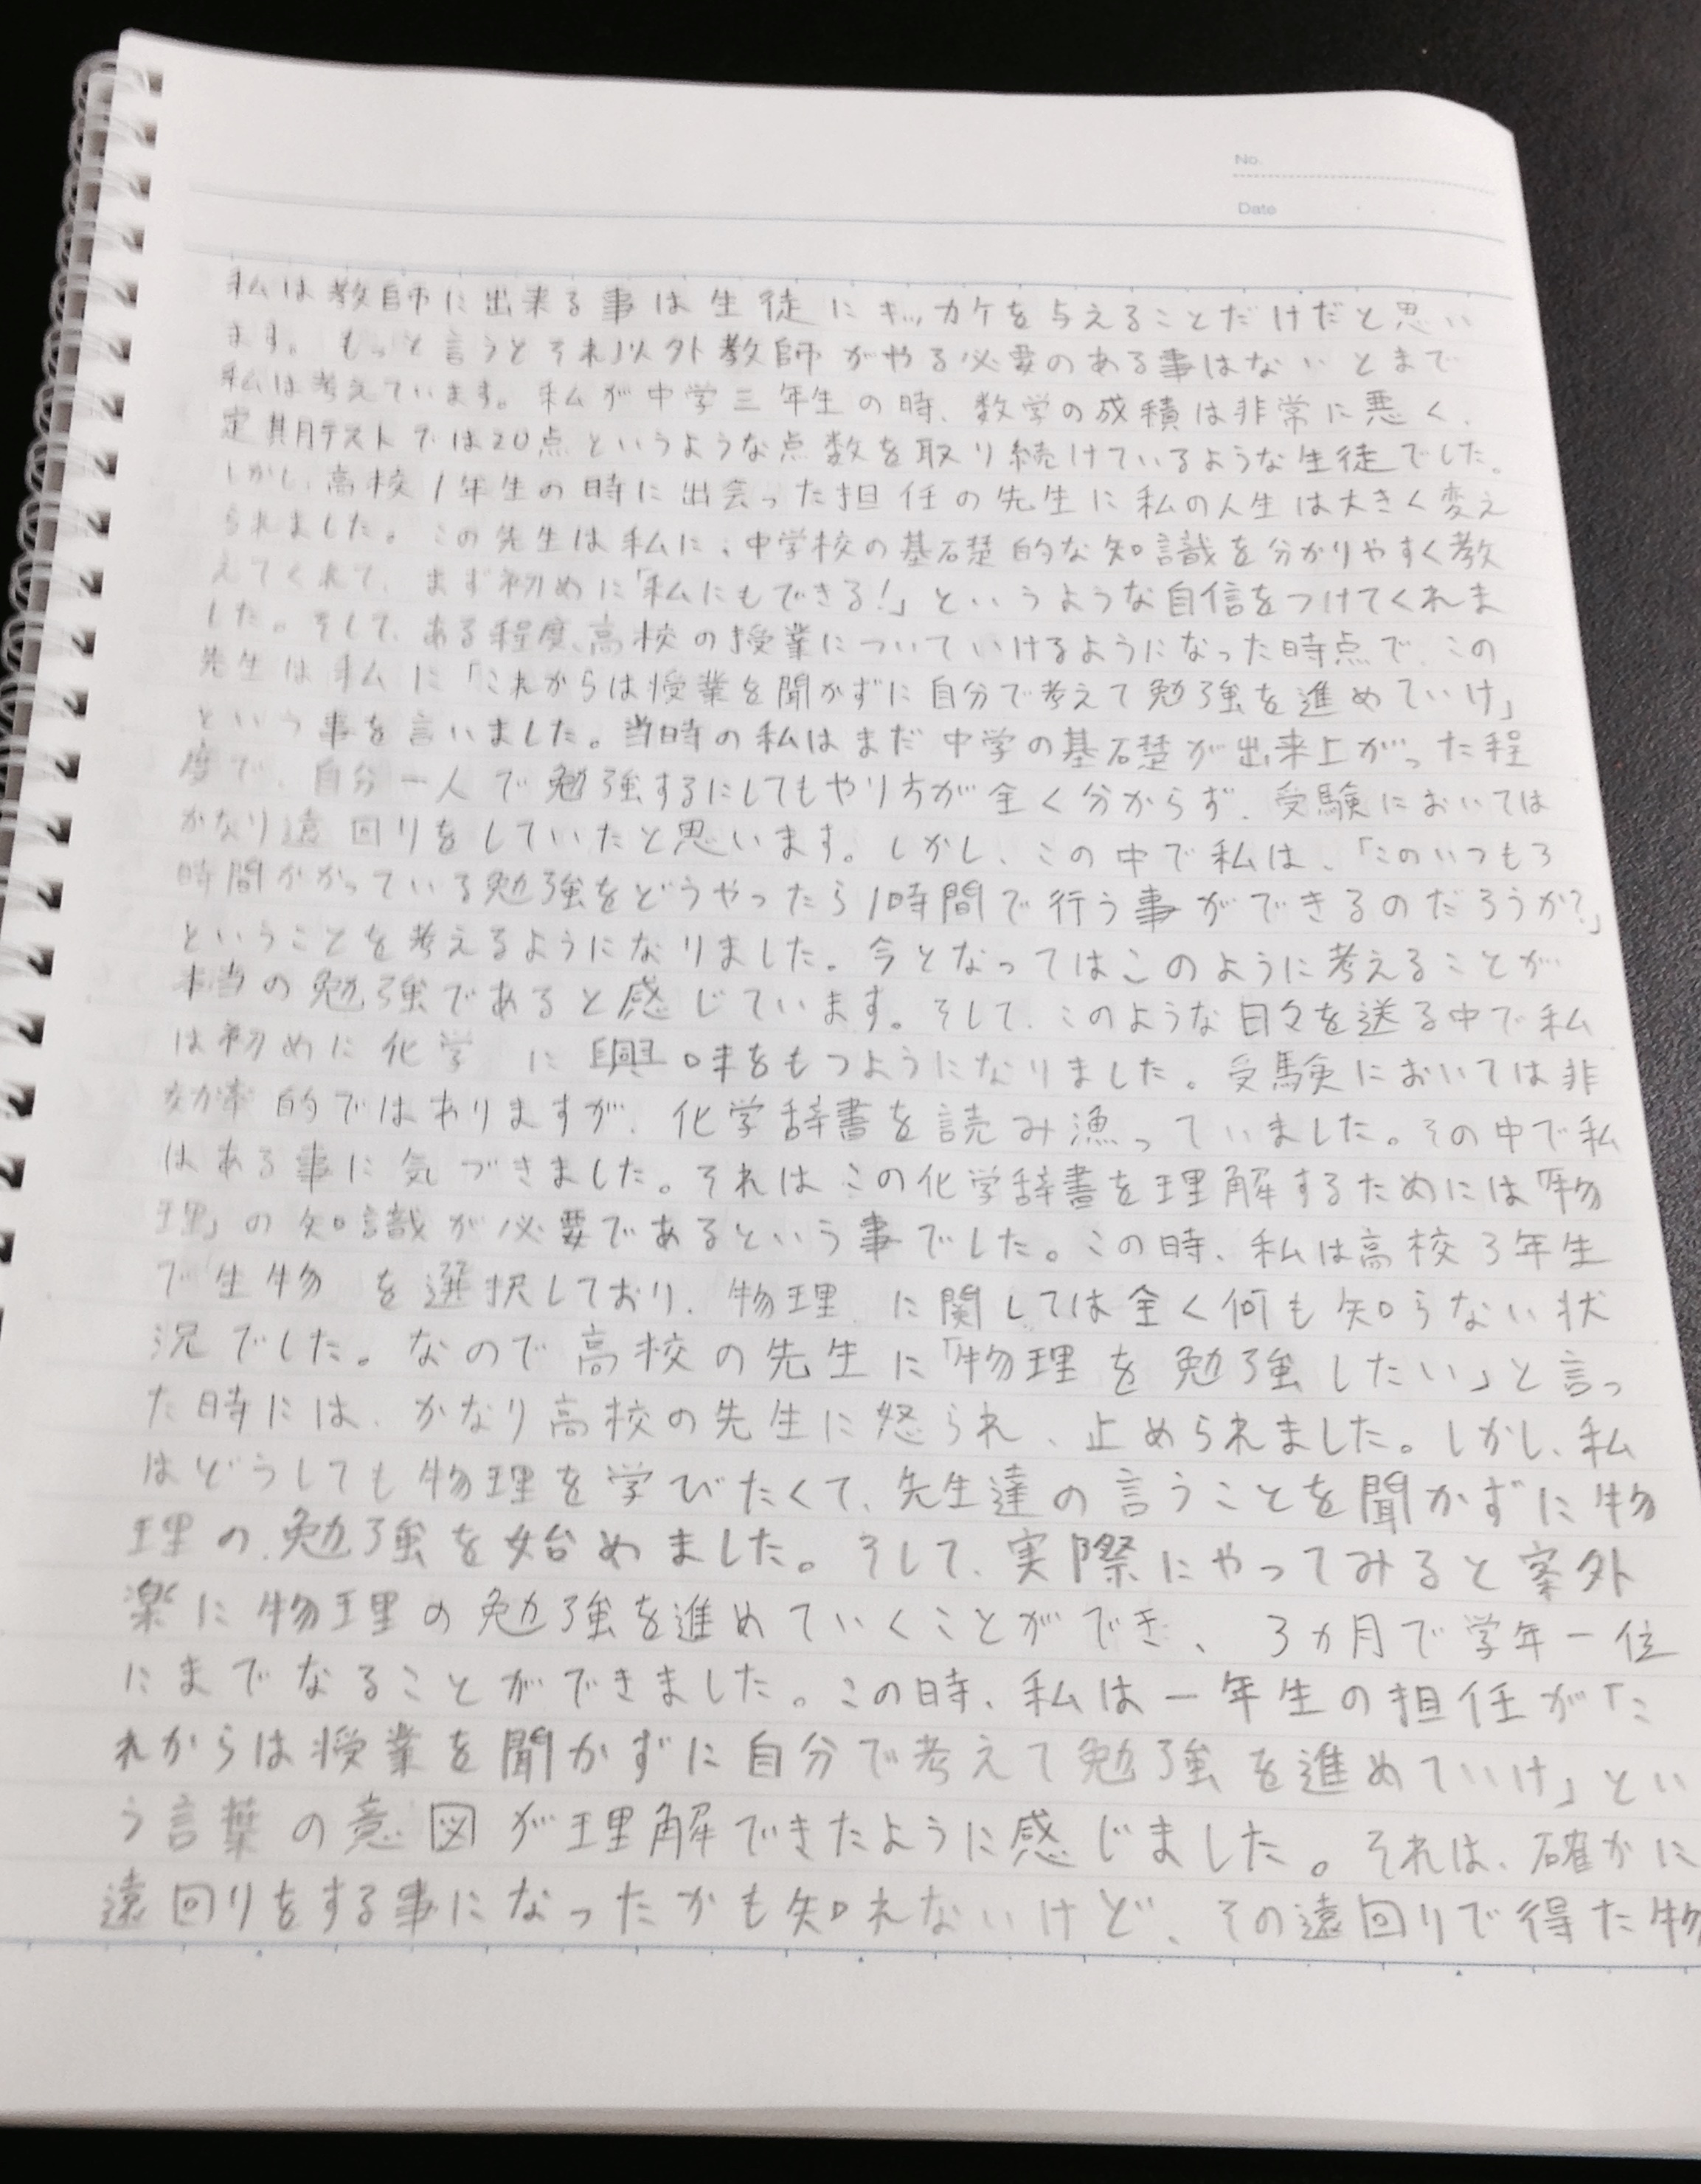 No.
Date
私は教師に出来る事は生徒にキッカケを与えることだけだと思い
ます。もっと言うとそれ以外教師がやる必要のある事はないとまで
私は考えています。私が中学三年生の時、数学の成積は非常に悪く、
定期テストでは20点というような点数を取り続けているような生徒でした。
しかし、高校1年生の時に出会った担任の先生に私の人生は大きく変え
られました。この先生は私に、中学校の基礎的な知識を分かりやすく教
えてくれて、まず初めに「私にもできる!」というような自信をつけてくれま
した。そして、ある程度、高校の授業についていけるようになった時点で、この
先生は私に「これからは授業を聞かずに自分で考えて勉強を進めていけ」
という事を言いました。当時の私はまだ中学の基礎が出来上がった程
度で、自分一人で勉強するにしてもやり方が全く分からず、受験においては
かなり遠回りをしていたと思います。しかし、この中で私は、「このいつも3
時間かかっている勉強をどうやったら1時間で行う事ができるのだろうか?」
ということを考えるようになりました。今となってはこのように考えることが
本当の勉強であると感じています。そして、このような日々を送る中で私
は初めに化学に興味をもつようになりました。受験においては非
効率的ではありますが、化学辞書を読み漁っていました。その中で私
はある事に気づきました。それはこの化学辞書を理解するためには「物
理」の知識が必要であるという事でした。この時、私は高校3年生
で生物を選択しており、物理に関しては全く何も知らない状
況でした。なので高校の先生に「物理を勉強したい」と言っ
た時には、かなり高校の先生に怒られ、止められました。しかし、私
はどうしても物理を学びたくて、先生達の言うことを聞かずに物
理の勉強を始めました。そして、実際にやってみると案外
楽に物理の勉強を進めていくことができ、3ヵ月で学年一位
にまでなることができました。この時、私は一年生の担任が「こ
れからは授業を聞かずに自分で考えて勉強を進めていけ」とい
う言葉の意図が理解できたように感じました。それは、確かに
遠回りをする事になったかも知れないけど、その遠回りで得た物